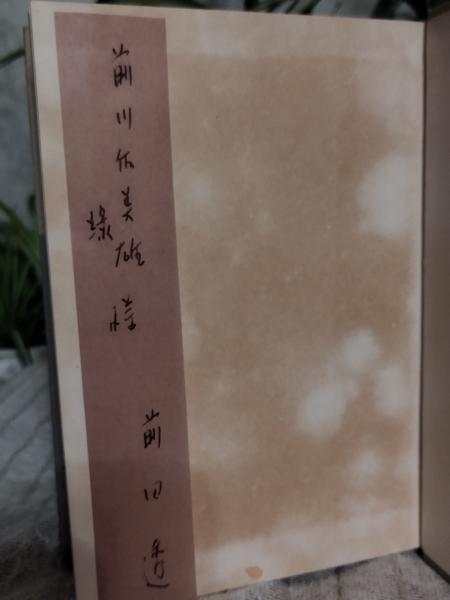 前川佐美雄様
緑
前田透